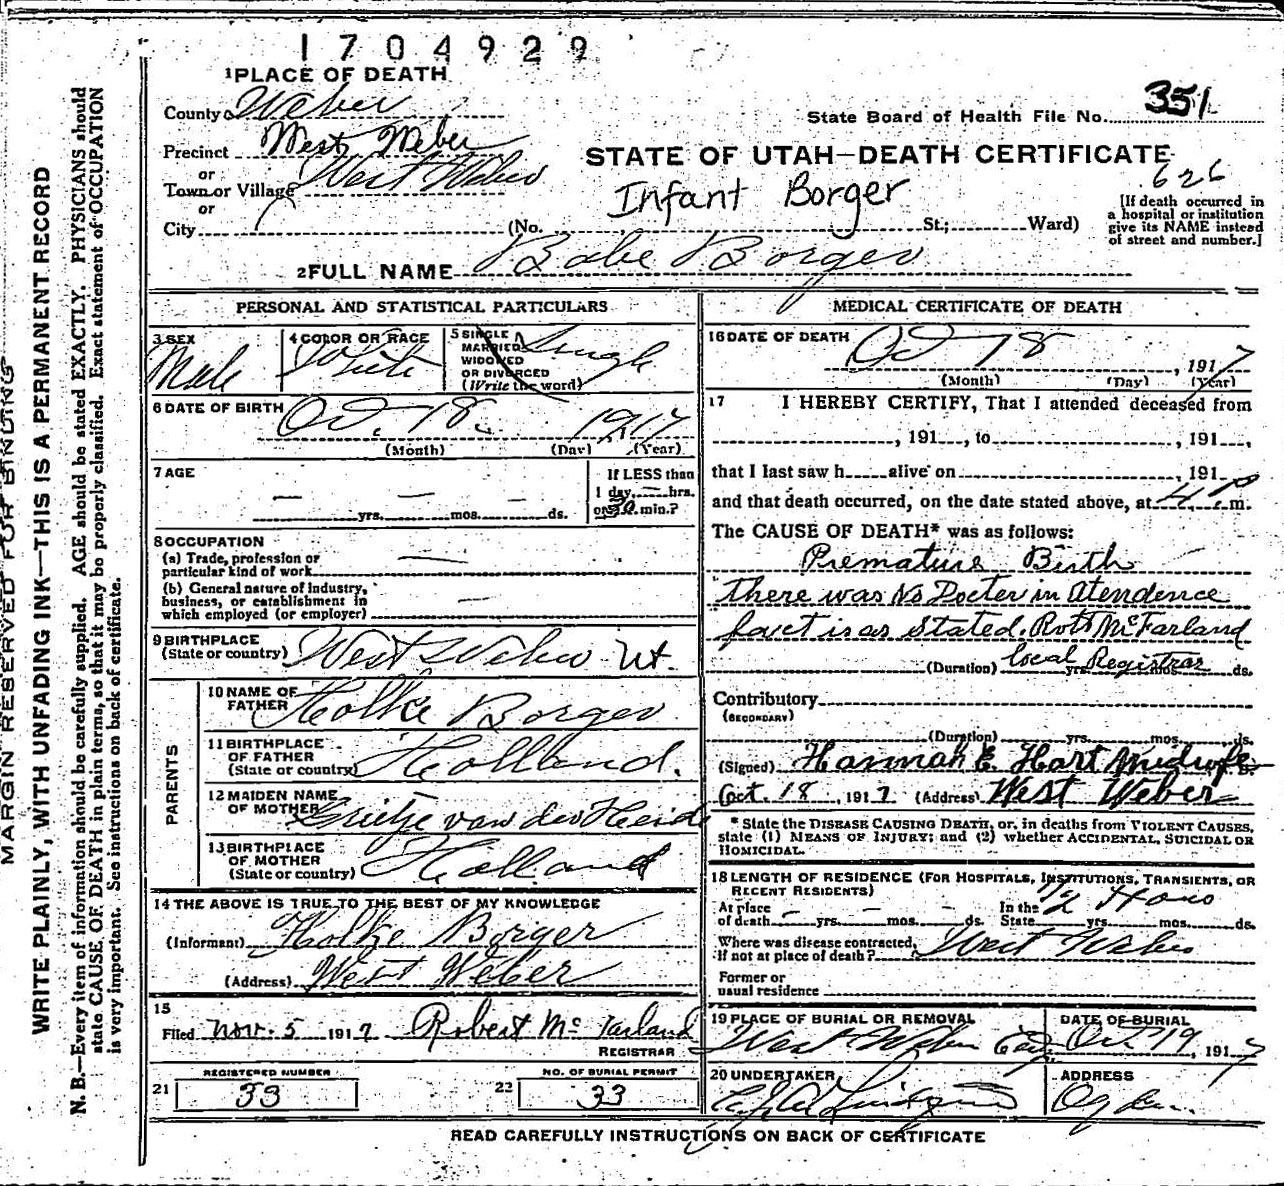 1704929
1 PLACE OF DEATH
County Weber
State Board of Health File No. 351
Precinct West Weber
STATE OF UTAH—DEATH CERTIFICATE
or
Town or Village West Weber
626
Infant Borger
or
City
(No. St.; Ward)
[If death occurred in
a hospital or institution
give its NAME instead
of street and number.]
2 FULL NAME Babe Borger
PERSONAL AND STATISTICAL PARTICULARS
3 SEX
Male
4 COLOR OR RACE
White
5 SINGLE
MARRIED
WIDOWED
OR DIVORCED
(Write the word)
Single
6 DATE OF BIRTH
Oct. 18. 1917
(Month) (Day) (Year)
7 AGE
— — —
yrs. mos. ds.
If LESS than
1 day, — hrs.
or 30 min.?
8 OCCUPATION
(a) Trade, profession or
particular kind of work —
(b) General nature of industry,
business, or establishment in
which employed (or employer) —
9 BIRTHPLACE
(State or country) West Weber Ut.
PARENTS
10 NAME OF
FATHER Holke Borger
11 BIRTHPLACE
OF FATHER
(State or country) Holland.
12 MAIDEN NAME
OF MOTHER Grietje van der Heide
13 BIRTHPLACE
OF MOTHER
(State or country) Holland
14 THE ABOVE IS TRUE TO THE BEST OF MY KNOWLEDGE
(Informant) Holke Borger
(Address) West Weber
15
Filed Nov. 5 1917 Robert McFarland
REGISTRAR
REGISTERED NUMBER
21 33
NO. OF BURIAL PERMIT
22 33
MEDICAL CERTIFICATE OF DEATH
16 DATE OF DEATH
Oct 18, 1917
(Month) (Day) (Year)
17 I HEREBY CERTIFY, That I attended deceased from
, 191 , to , 191 ,
that I last saw h alive on , 191
and that death occurred, on the date stated above, at 4 P m.
The CAUSE OF DEATH* was as follows:
Premature Birth
There was No Docter in Atendence
fact is as stated. Robt McFarland
local Registrar
(Duration) yrs. mos. ds.
Contributory
(SECONDARY)
(Duration) yrs. mos. ds.
(Signed) Hannah E. Hart Midwife
Oct. 18, 1917 (Address) West Weber
* State the DISEASE CAUSING DEATH, or, in deaths from VIOLENT CAUSES,
state (1) MEANS OF INJURY; and (2) whether ACCIDENTAL, SUICIDAL OR
HOMICIDAL.
18 LENGTH OF RESIDENCE (FOR HOSPITALS, INSTITUTIONS, TRANSIENTS, OR
RECENT RESIDENTS)
At place
of death — yrs. — mos. — ds.
In the
State yrs. mos. ds.
1/2 Hour
Where was disease contracted,
if not at place of death? West Weber
Former or
usual residence
19 PLACE OF BURIAL OR REMOVAL
West Weber
DATE OF BURIAL
Oct 19, 1917
20 UNDERTAKER
Lindquist
ADDRESS
Ogden
READ CAREFULLY INSTRUCTIONS ON BACK OF CERTIFICATE
MARGIN RESERVED FOR BINDING
WRITE PLAINLY, WITH UNFADING INK—THIS IS A PERMANENT RECORD
N. B.—Every item of information should be carefully supplied. AGE should be stated EXACTLY. PHYSICIANS should
state CAUSE OF DEATH in plain terms, so that it may be properly classified. Exact statement of OCCUPATION
is very important. See instructions on back of certificate.